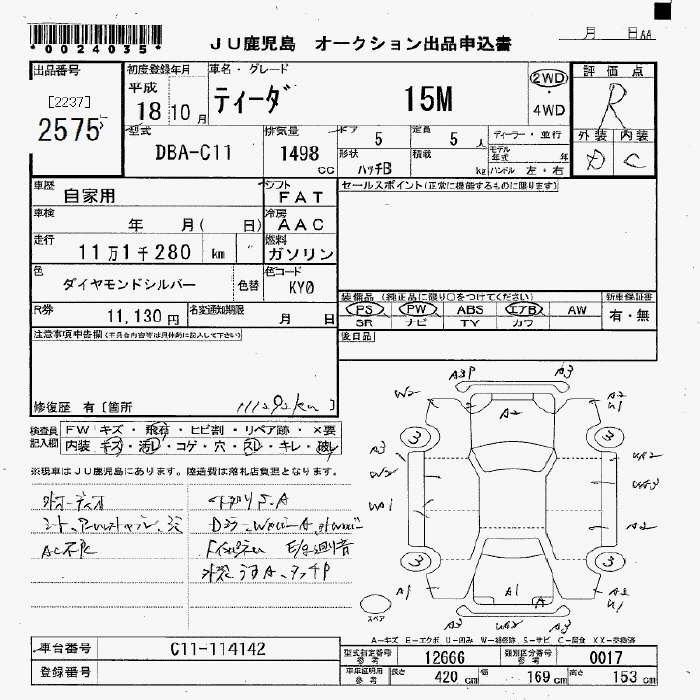 *0024035*
JU鹿児島 オークション出品申込書
月 日AA
出品番号
[2237]
2575
初度登録年月
平成
18 10月
車名・グレード
ティーダ 15M
2WD
・
4WD
評価点
R
外装 内装
D C
型式
DBA-C11
排気量
1498 cc
ドア
5
定員
5 人
形状
ハッチB
積載
kg
ディーラー・並行
モデル年式 年
ハンドル 左・右
車歴
自家用
シフト
FAT
車検
年 月( 日)
冷房
AAC
走行
11万1千280 km
燃料
ガソリン
色
ダイヤモンドシルバー
色替
色コード
KY0
R券
11,130円
名変通知期限
月 日
セールスポイント(正常に機能するものに限ります)
装備品 (純正品に限り○をつけてください)
PS PW ABS エアB AW
SR ナビ TV カワ
新車保証書
有・無
後日品
注意事項申告欄(不具合内容等は具体的に記入して下さい)
修復歴 有[箇所 ]
111292km
検査員記入欄
FW キズ・飛石・ヒビ割・リペア跡・×要
内装 キズ・汚レ・コゲ・穴・スレ・キレ・破レ
※現車はJU鹿児島にあります。陸送費は落札店負担となります。
外オーディオ
AC不良
A3P
A3
W2
A2
A2
U1
3
3
A3
W2
A2
3
3
A1
A1
A
U1
A3
U3
スペア
A-キズ E-エクボ U-凹み W-補修跡 S-サビ C-腐食 XX-交換済
車台番号
C11-114142
登録番号
型式指定番号
参考
12666
類別区分番号
参考
0017
車庫証明用
参考
長さ
420 cm
幅
169 cm
高さ
153 cm